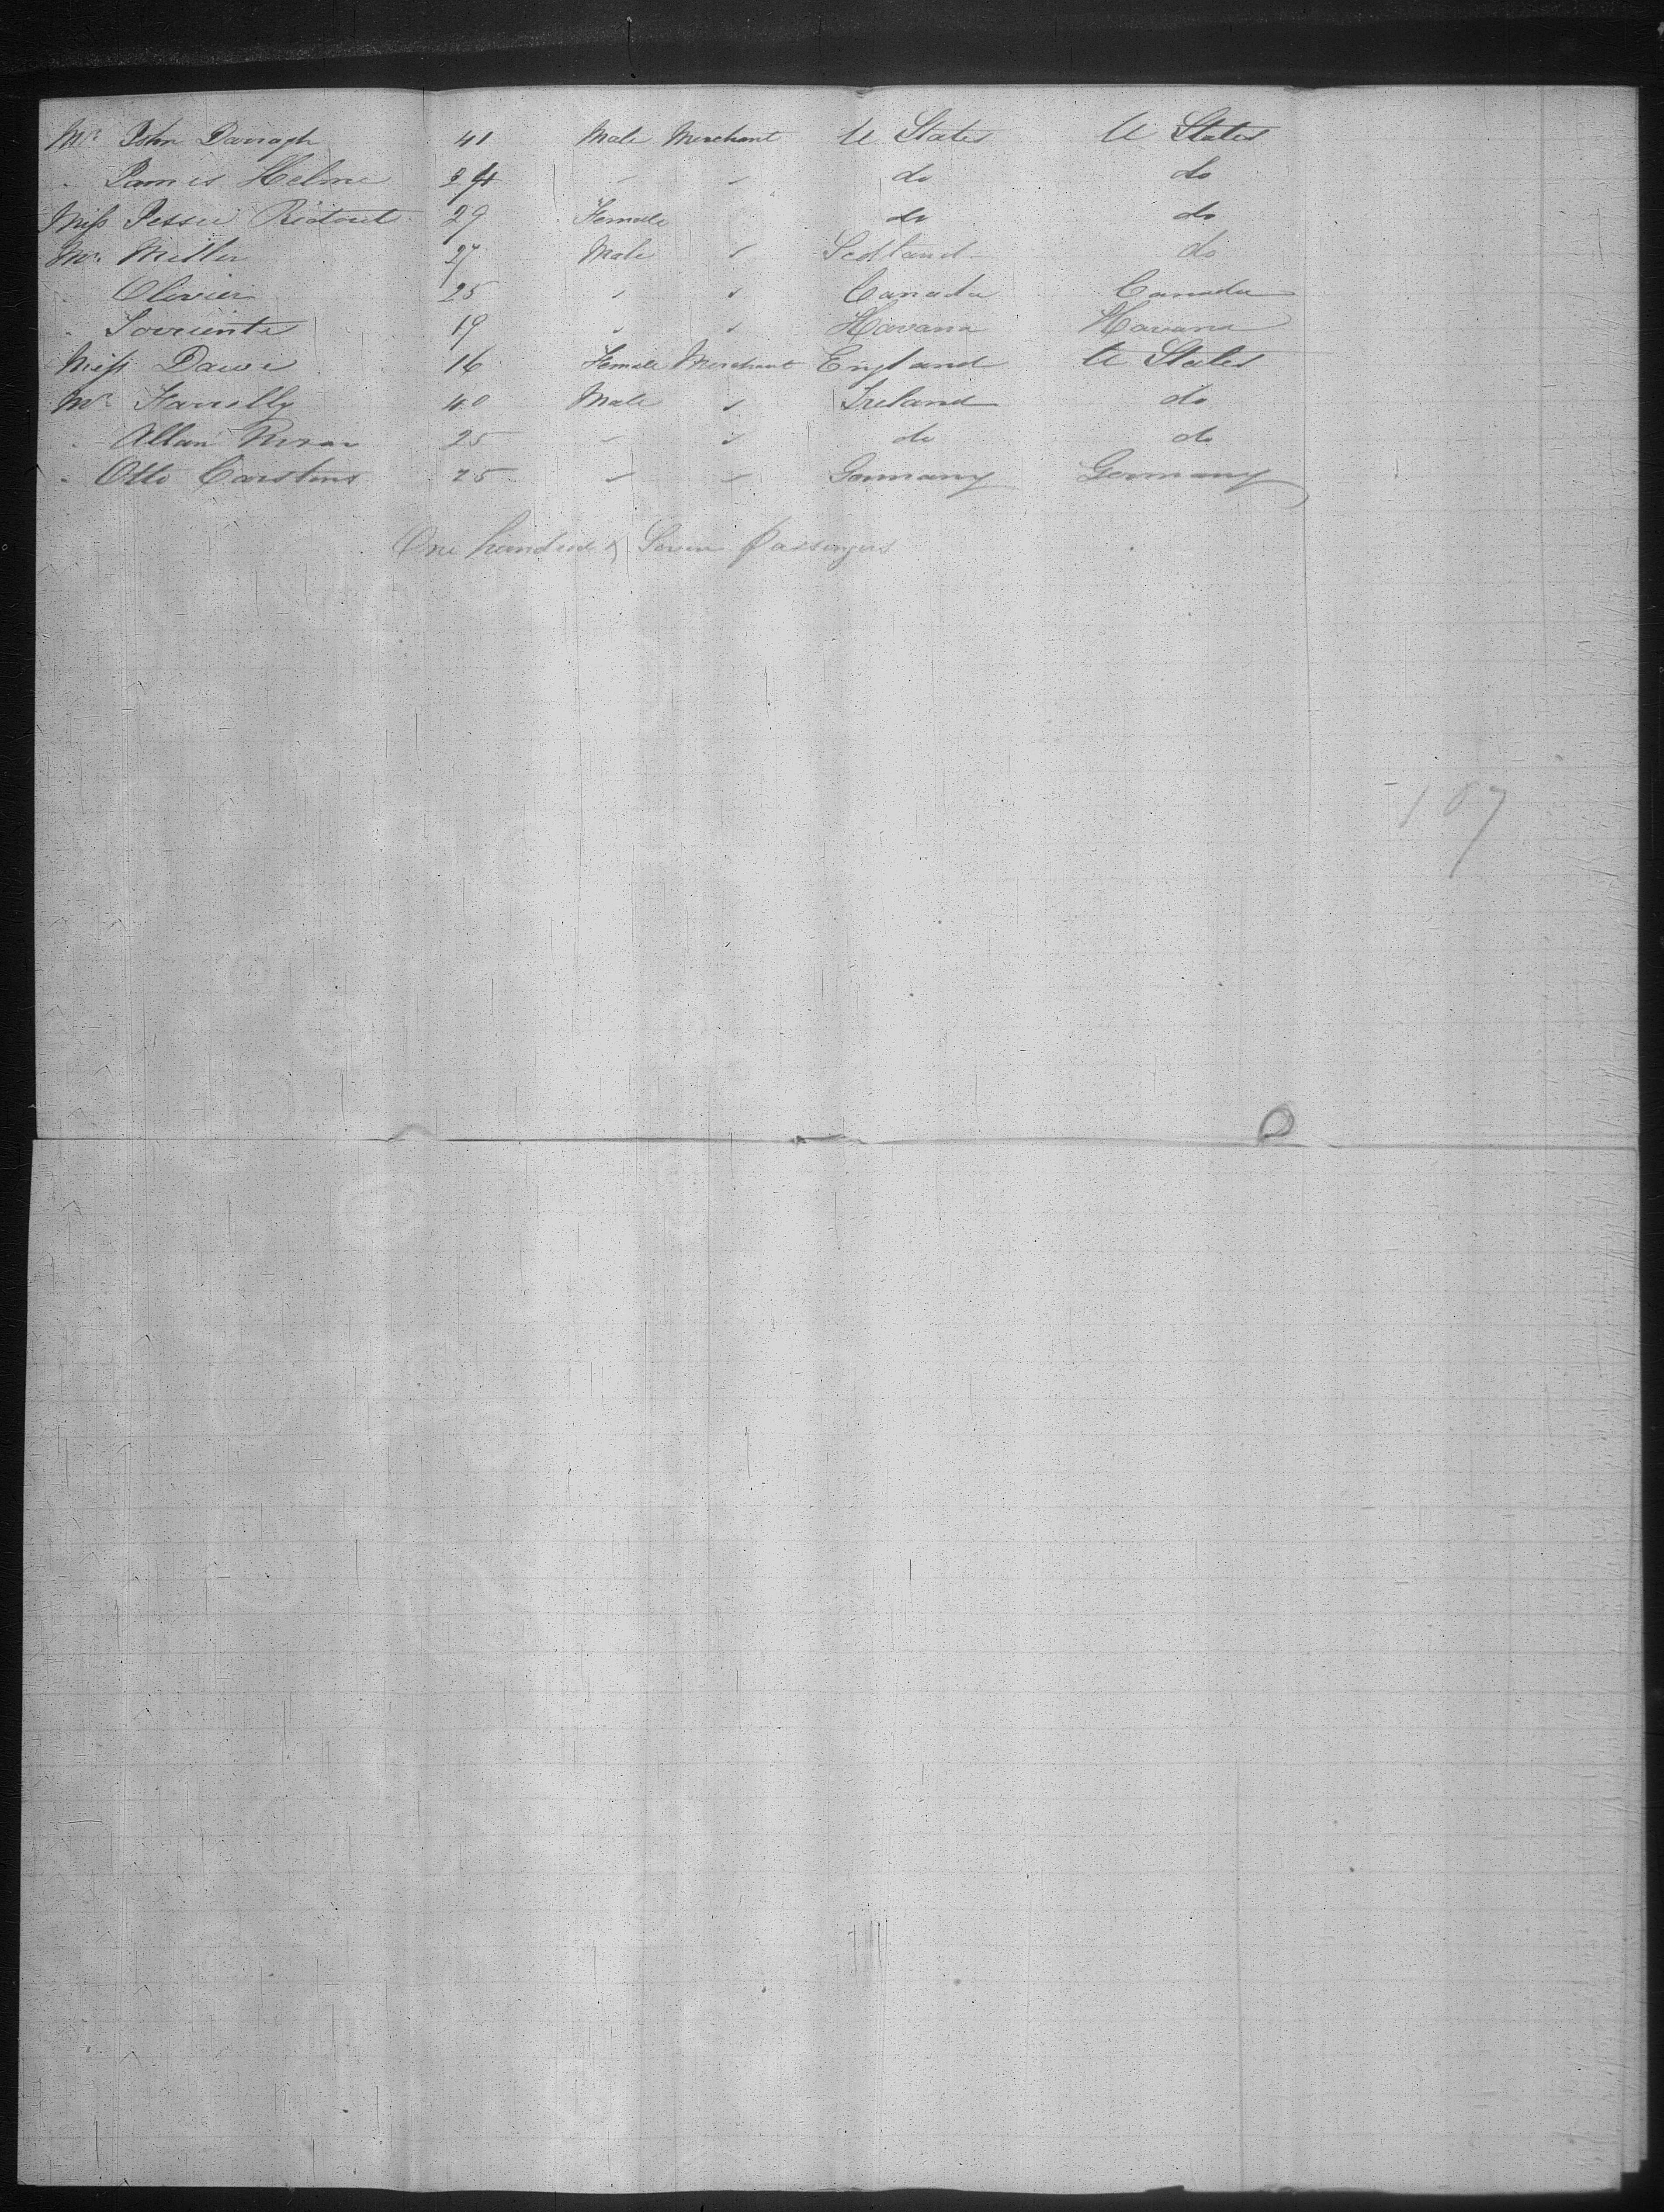 Mr John Darragh 41 Male Merchant U States U States
" James Helme 24 " " do do
Miss Jessie Ridout 29 Female do do
Mr Miller 27 Male " Scotland do
" Olivier 25 " " Canada Canada
" 19 " " Havana Havana
Miss Dawe 16 Female Merchant England U States
Mr Farrelly 40 Male " Ireland do
" Allan 25 " " do do
" Otto Carstens 25 " " Germany Germany
One hundred & Seven Passengers
107